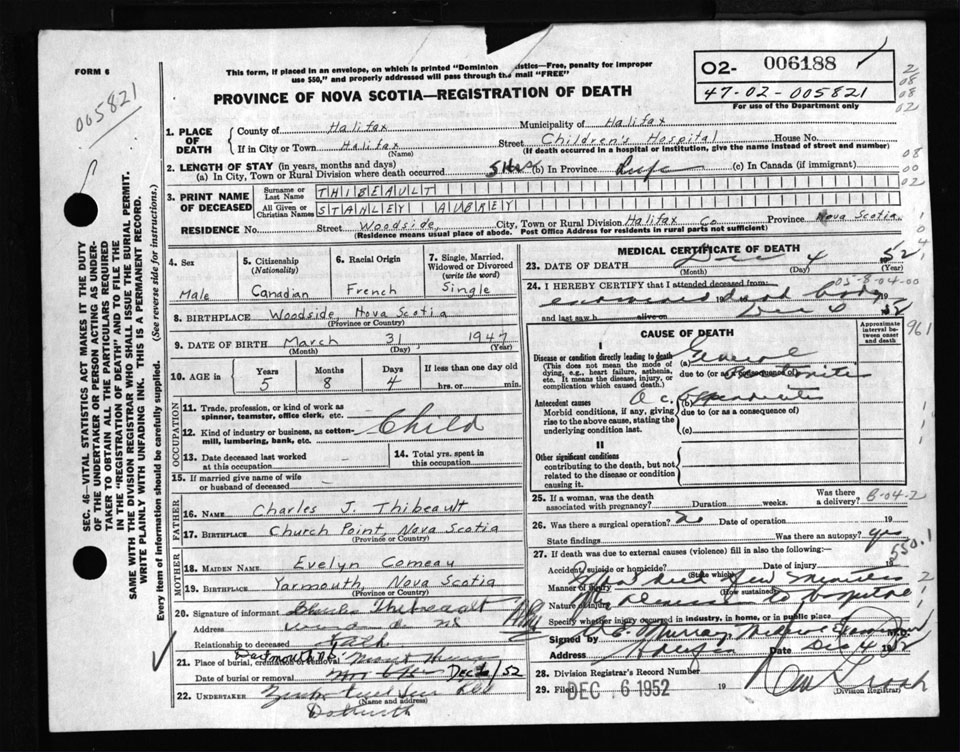 FORM 6
005821
This form, if placed in an envelope, on which is printed "Dominion istics—Free, penalty for improper
use $50," and properly addressed will pass through the mail "FREE"
PROVINCE OF NOVA SCOTIA—REGISTRATION OF DEATH
02- 006188
47-02-005821
For use of the Department only
SEC. 46—VITAL STATISTICS ACT MAKES IT THE DUTY
OF THE UNDERTAKER OR PERSON ACTING AS UNDER-
TAKER TO OBTAIN ALL THE PARTICULARS REQUIRED
IN THE "REGISTRATION OF DEATH" AND TO FILE THE
SAME WITH THE DIVISION REGISTRAR WHO SHALL ISSUE THE BURIAL PERMIT.
WRITE PLAINLY WITH UNFADING INK. THIS IS A PERMANENT RECORD.
Every item of information should be carefully supplied. (See reverse side for instructions.)
1. PLACE OF DEATH
County of Halifax Municipality of Halifax
If in City or Town Halifax Street Children's Hospital House No.
(Name) (If death occurred in a hospital or institution, give the name instead of street and number)
2. LENGTH OF STAY (in years, months and days)
(a) In City, Town or Rural Division where death occurred (b) In Province Life (c) In Canada (if immigrant)
3. PRINT NAME OF DECEASED
Surname or Last Name THIBEAULT
All Given or Christian Names STANLEY AUBREY
RESIDENCE No. Street Woodside, City, Town or Rural Division Halifax Co Province Nova Scotia
(Residence means usual place of abode. Post Office Address for residents in rural parts not sufficient)
4. Sex Male
5. Citizenship (Nationality) Canadian
6. Racial Origin French
7. Single, Married, Widowed or Divorced (write the word) Single
8. BIRTHPLACE Woodside, Nova Scotia
(Province or Country)
9. DATE OF BIRTH March 31 1947
(Month) (Day) (Year)
10. AGE in Years Months Days If less than one day old
5 8 4 hrs. or min.
OCCUPATION
11. Trade, profession, or kind of work as
spinner, teamster, office clerk, etc.
Child
12. Kind of industry or business, as cotton-
mill, lumbering, bank, etc.
13. Date deceased last worked
at this occupation
14. Total yrs. spent in
this occupation
15. If married give name of wife
or husband of deceased
FATHER
16. NAME Charles J. Thibeault
17. BIRTHPLACE Church Point, Nova Scotia
(Province or Country)
MOTHER
18. MAIDEN NAME Evelyn Comeau
19. BIRTHPLACE Yarmouth, Nova Scotia
(Province or Country)
20. Signature of informant Charles Thibeault
Address NS
Relationship to deceased Fath
21. Place of burial, cremation or removal
Date of burial or removal Dec 6/52
22. UNDERTAKER
(Name and address)
MEDICAL CERTIFICATE OF DEATH
23. DATE OF DEATH Dec 4 52
(Month) (Day) (Year)
24. I HEREBY CERTIFY that I attended deceased from:
examined dead body
and last saw h alive on Dec 52
CAUSE OF DEATH
Approximate interval between onset and death
I
Disease or condition directly leading to death
(This does not mean the mode of
dying, e.g., heart failure, asthenia,
etc. It means the disease, injury, or
complication which caused death.)
(a) General
due to (or as Peritonitis
Antecedent causes
Morbid conditions, if any, giving
rise to the above cause, stating the
underlying condition last.
(b) Ac. Appendicitis
due to (or as a consequence of)
(c)
II
Other significant conditions
contributing to the death, but not
related to the disease or condition
causing it.
25. If a woman, was the death
associated with pregnancy? Duration weeks. Was there a delivery?
26. Was there a surgical operation? no Date of operation 19
State findings Was there an autopsy?
550.1
27. If death was due to external causes (violence) fill in also the following:—
Accident, suicide or homicide? Date of injury 19
(State which)
Manner of injury
(How sustained)
Nature of injury
Specify whether injury occurred in industry, in home, or in public place
Signed by Murray M.D.
Address Halifax Date Dec 4 52
28. Division Registrar's Record Number
29. Filed DEC 6 1952 19
(Division Registrar)